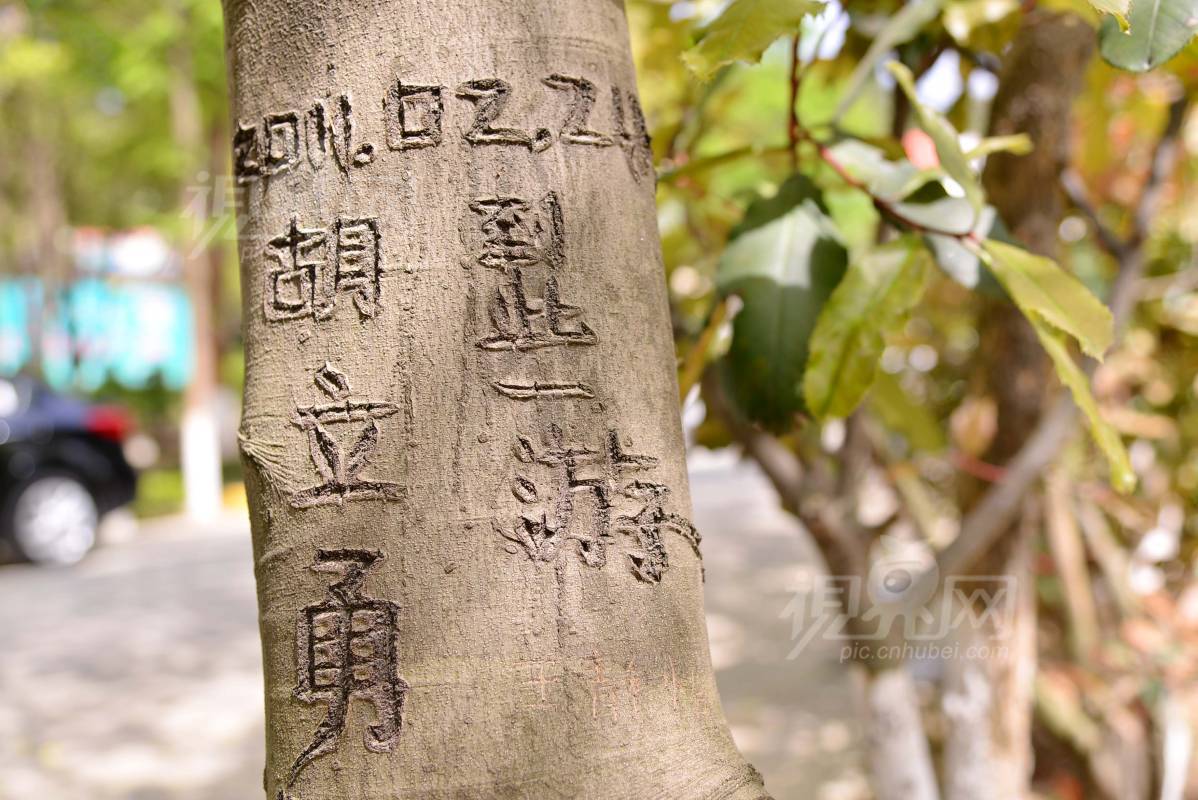 2011.02.21
胡立勇
到此一游
视界网
pic.cnhubei.com